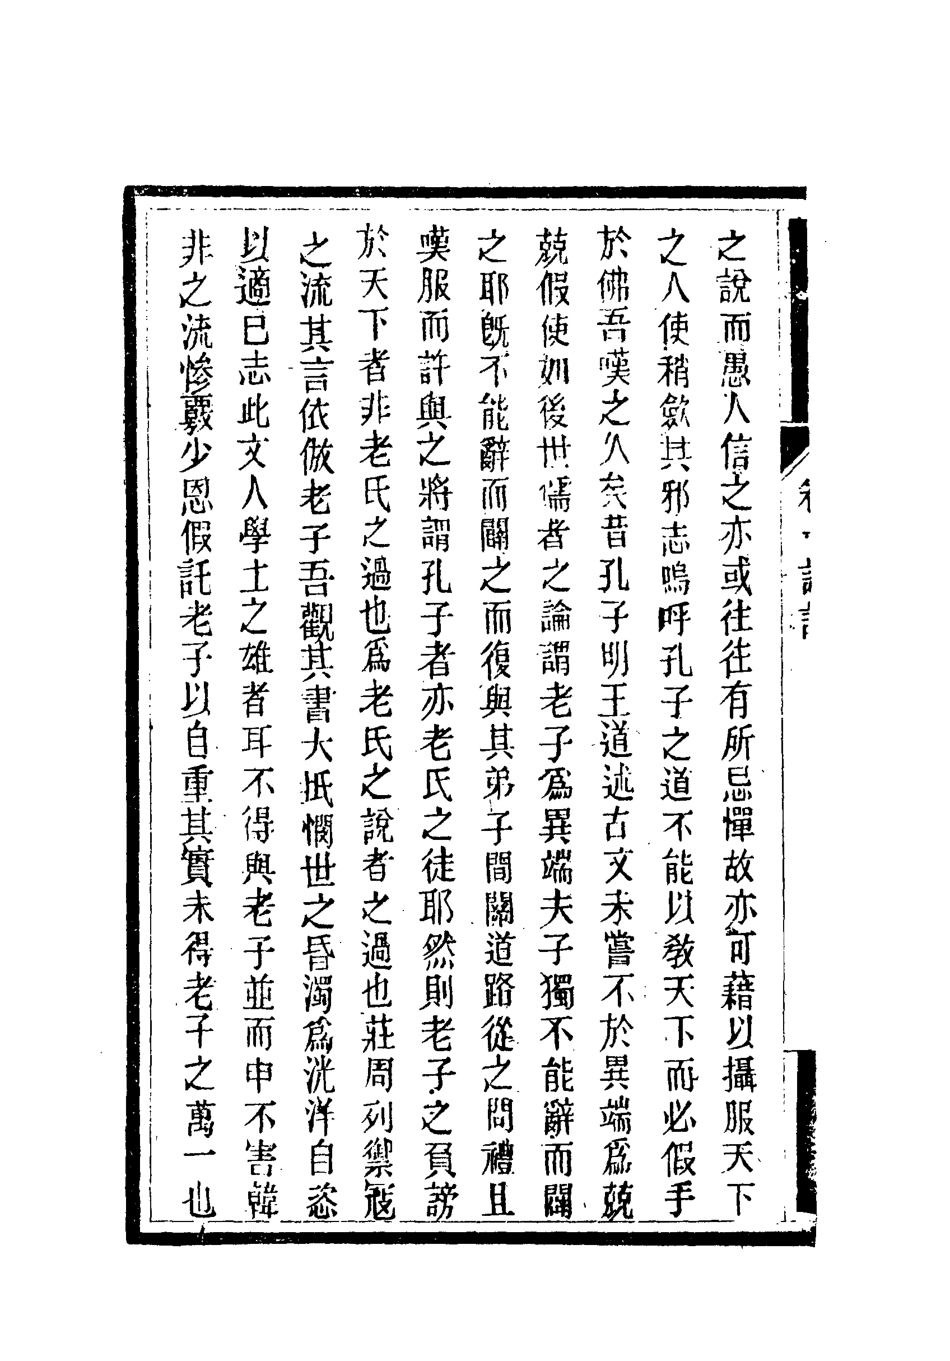 之說而愚人信之亦或往往有所忌憚故亦可藉以攝服天下
之人使稍斂其邪志嗚呼孔子之道不能以敎天下而必假手
於佛吾嘆之久矣昔孔子明王道述古文未嘗不於異端爲兢
兢假使如後世儒者之論謂老子爲異端夫子獨不能辭而闢
之耶旣不能辭而闢之而復與其弟子間關道路從之問禮且
嘆服而許與之將謂孔子者亦老氏之徒耶然則老子之負謗
於天下者非老氏之過也爲老氏之說者之過也莊周列禦寇
之流其言依倣老子吾觀其書大抵憫世之昏濁爲洸洋自恣
以適已志此文人學士之雄者耳不得與老子並而申不害韓
非之流慘覈少恩假託老子以自重其實未得老子之萬一也